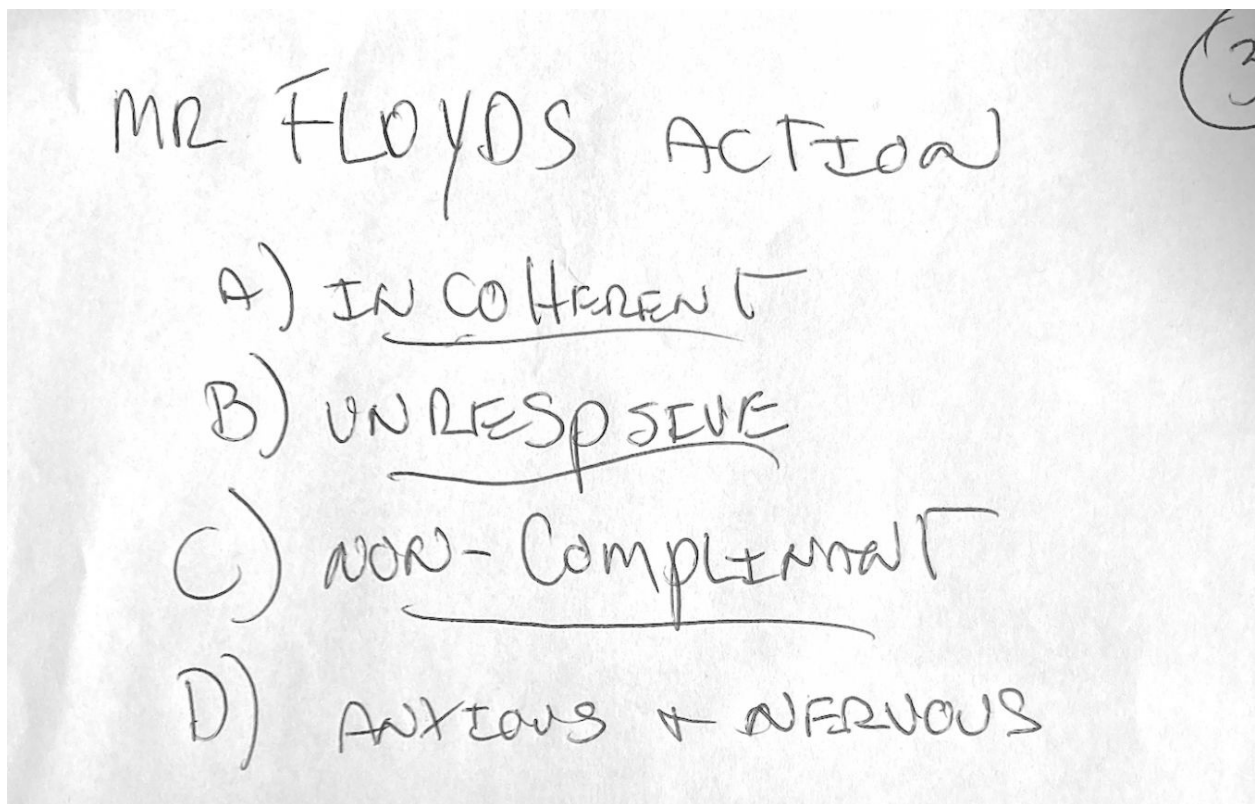 3
MR FLOYDS ACTION
A) INCOHERENT
B) UNRESPSIVE
C) NON-COMPLINANT
D) ANXIOUS + NERVOUS